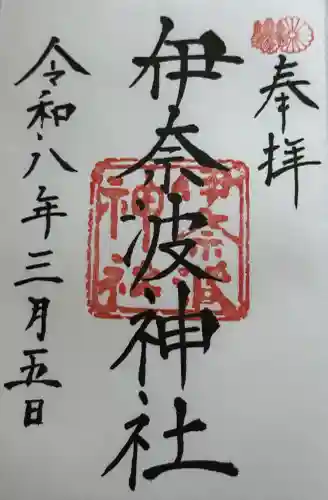 奉拝
伊奈波神社
令和八年三月五日
伊奈波
神社